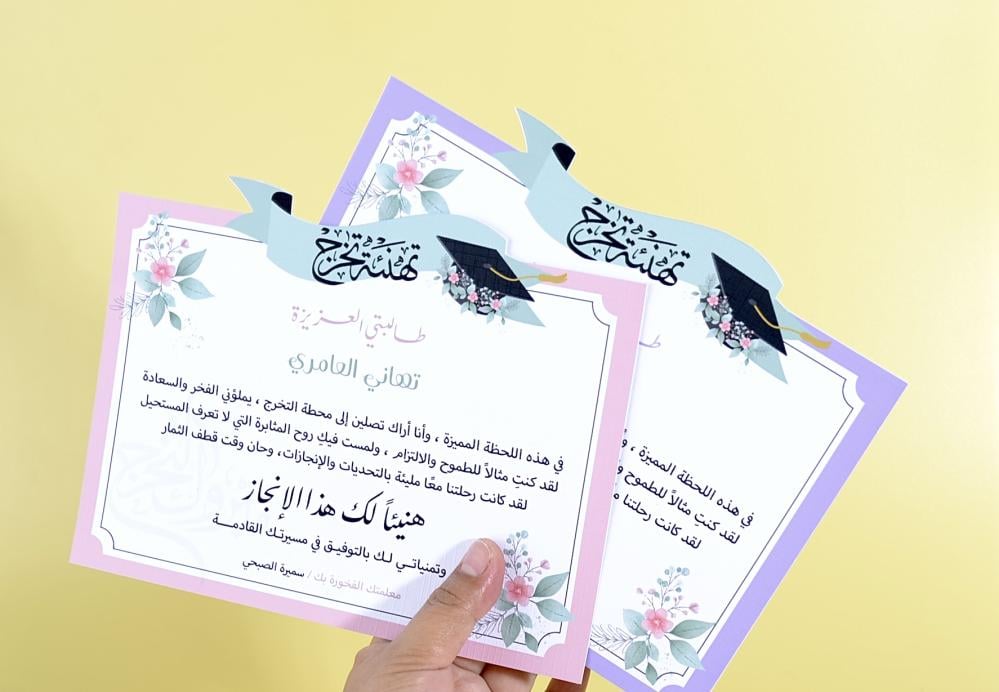 تهنئة تخرج
طالبتي العزيزة
تهاني العامري
في هذه اللحظة المميزة ، وأنا أراك تصلين إلى محطة التخرج ، يملؤني الفخر والسعادة
لقد كنتِ مثالاً للطموح والالتزام ، ولمست فيكِ روح المثابرة التي لا تعرف المستحيل
لقد كانت رحلتنا معًا مليئة بالتحديات والإنجازات، وحان وقت قطف الثمار
هنيئاً لك هذا الإنجاز
وتمنياتي لك بالتوفيق في مسيرتك القادمة
معلمتك الفخورة بك / سميرة الصبحي
تهنئة تخرج
في هذه اللحظة المميزة ،
لقد كنتِ مثالاً للطموح
لقد كانت رحلتنا